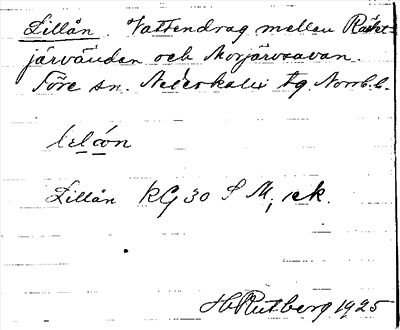 Lillån. Vattendrag mellan Räkt-
järvänden och Morjärvsavan.
Töre sn. Nederkalix tg Norrb.l.
lelån
Lillån KG 30 S M; ek.
H Rutberg 1925